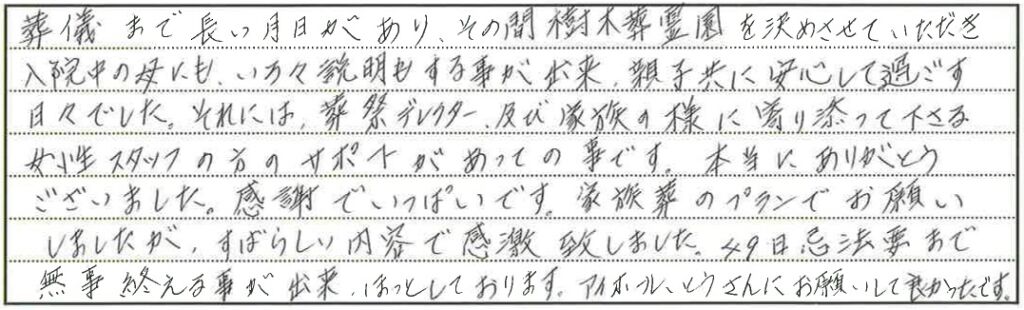 葬儀まで長い月日があり、その間樹木葬霊園を決めさせていただき
入院中の母にも、いろ々説明もする事が出来、親子共に安心して過ごす
日々でした。それには、葬祭デレクター、及び家族の様に寄り添って下さる
女性スタッフの方のサポートがあっての事です。本当にありがとう
ございました。感謝でいっぱいです。家族葬のプランでお願い
しましたが、すばらしい内容で感激致しました。49日忌法要まで
無事終える事が出来、ほっとしております。アイホールさとうさんにお願いして良かったです。